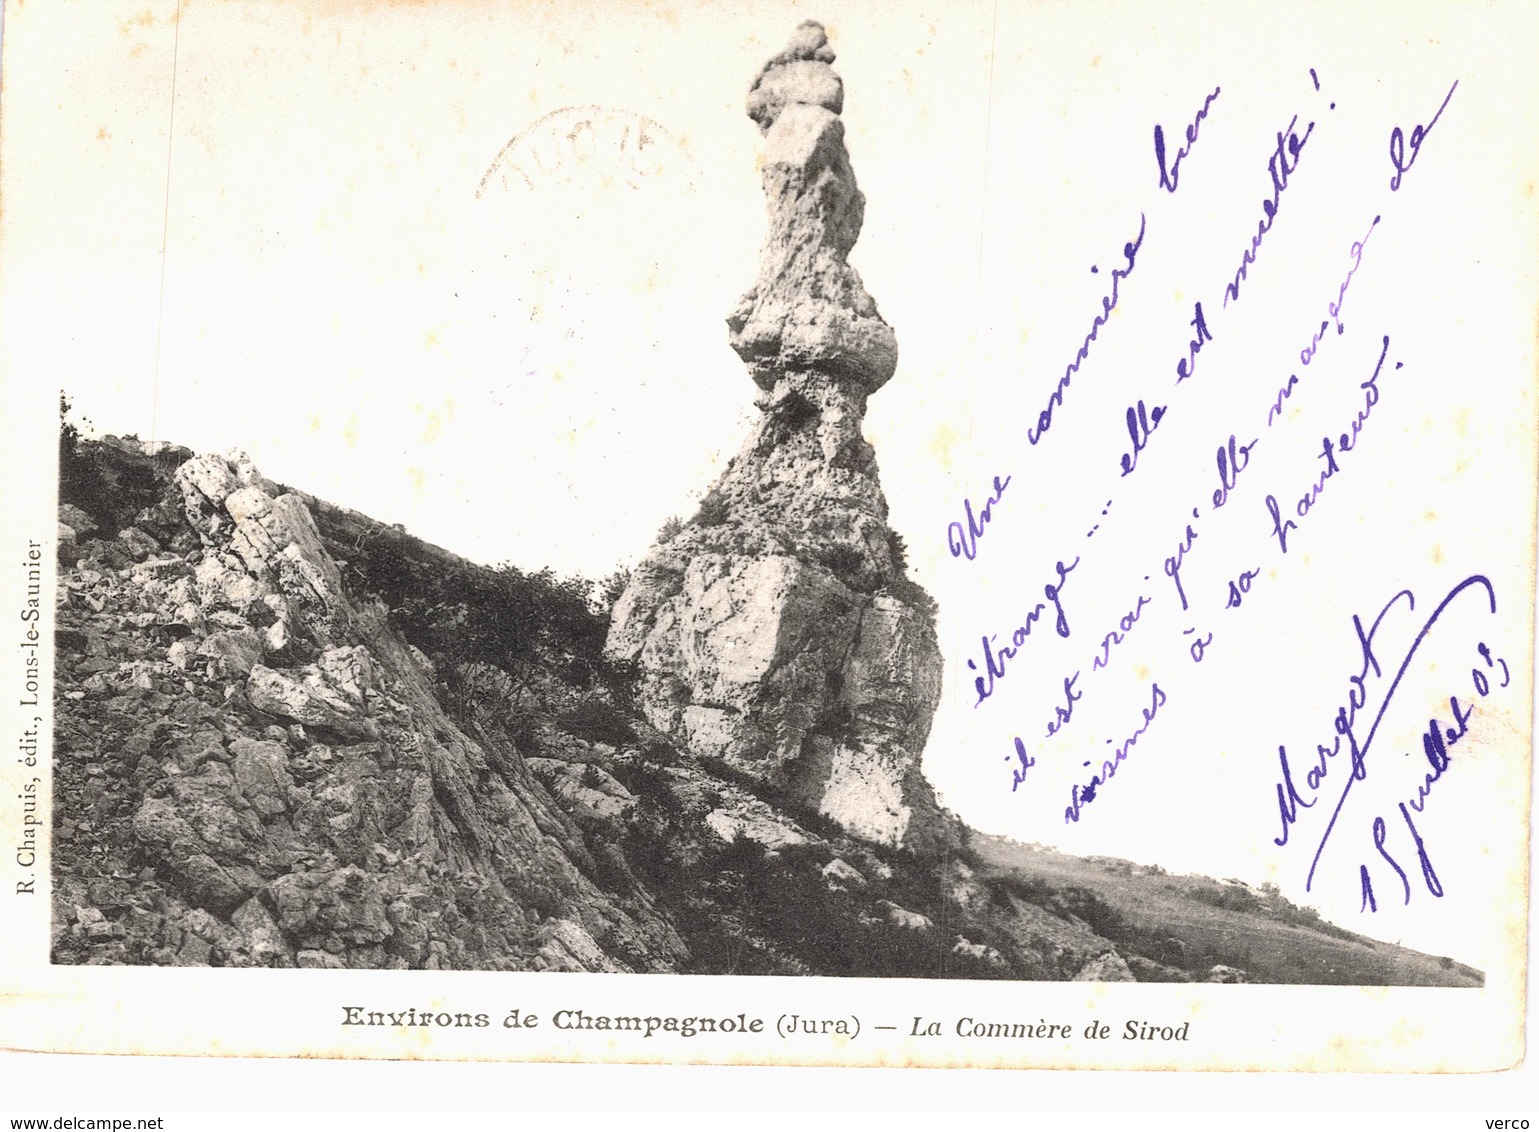 Une commère bien
étrange .... elle est muette !
il est vrai qu'elle manque de
voisines à sa hauteur.
Margot
15 juillet 03
R. Chapuis, édit., Lons-le-Saunier
Environs de Champagnole (Jura) — La Commère de Sirod
www.delcampe.net
verco